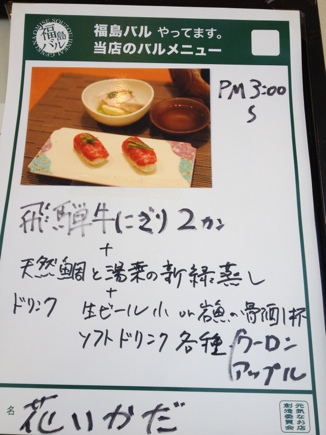 福島バル
福島バル やってます。
当店のバルメニュー
PM 3:00
飛騨牛にぎり2カン
+
天然鯛と湯葉の新緑蒸し
+
ドリンク 生ビール小 or 岩魚の骨酒1杯
ソフトドリンク各種 ウーロン
アップル
名 花いかだ
元気なお店
創造委員会